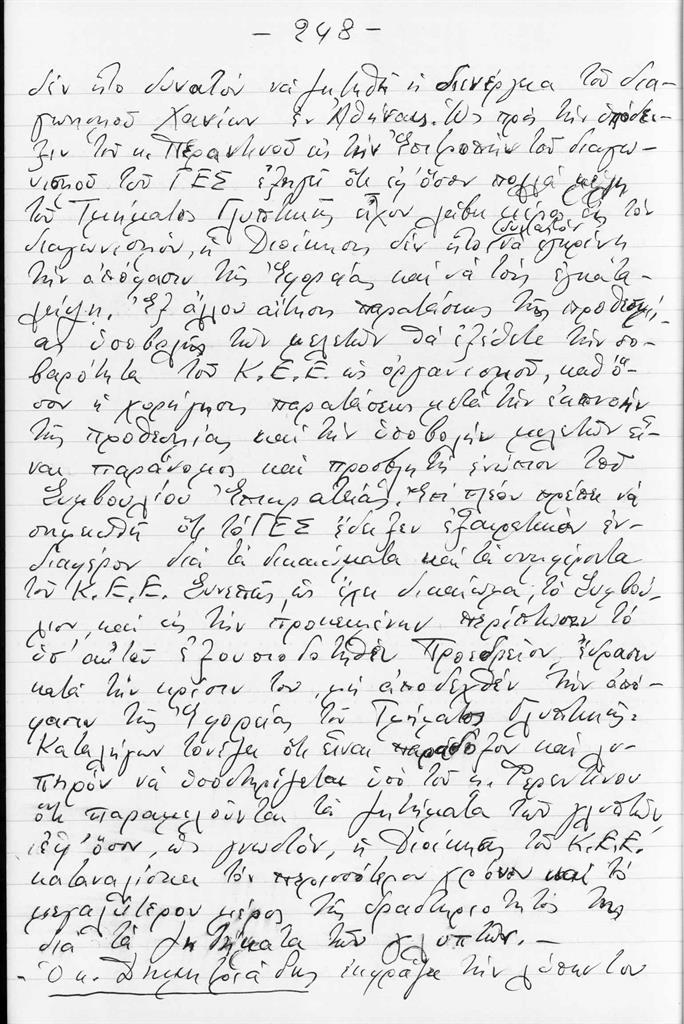 - 248 -
δέν ἦτο δυνατόν νά ζητηθῇ ἡ διενέργεια τοῦ δια-
γωνισμοῦ Χανίων ἐν Ἀθήναις. Ὡς πρός τήν ὑπόδει-
ξιν τοῦ κ. Περαντινοῦ εἰς τήν Ἐπιτροπήν τοῦ διαγω-
νισμοῦ τοῦ ΓΕΣ ἐξηγεῖ ὅτι ἐφ' ὅσον πολλά μέλη
τοῦ Τμήματος Γλυπτικῆς εἶχον λάβει μέρος εἰς τόν
διαγωνισμόν, ἡ Διοίκησις δέν ἦτο δυνατόν νά ἐγκρίνῃ
τήν ἀπόφασιν τῆς Ἐφορείας καί νά τούς ἐγκατα-
λείψῃ. Ἐξ ἄλλου αἴτησις παρατάσεως τῆς προθεσμί-
ας ὑποβολῆς τῶν μελετῶν θά ἐξέθετε τήν σο-
βαρότητα τοῦ Κ.Ε.Ε. ὡς ὀργανισμοῦ, καθ' ὅ-
σον ἡ χορήγησις παρατάσεως μετά τήν ἐκπνοήν
τῆς προθεσμίας καί τήν ὑποβολήν μελετῶν εἶ-
ναι παράνομος καί προσβλητή ἐνώπιον τοῦ
Συμβουλίου Ἐπικρατείας. Ἐπί πλέον πρέπει νά
σημειωθῇ ὅτι τό ΓΕΣ ἔδειξεν ἐξαιρετικόν ἐν-
διαφέρον διά τά δικαιώματα καί τά συμφέροντα
τοῦ Κ.Ε.Ε. Συνεπῶς, ὡς ἔχει δικαίωμα, τό Συμβού-
λιον, καί εἰς τήν προκειμένην περίπτωσιν τό
ὑπ' αὐτοῦ ἐξουσιοδοτηθέν Προεδρεῖον, ἔδρασεν
κατά τήν κρίσιν του, μή ἀποδεχθέν τήν ἀπό-
φασιν τῆς Ἐφορείας τοῦ Τμήματος Γλυπτικῆς.
Καταλήγων τονίζει ὅτι εἶναι παράδοξον καί λυ-
πηρόν νά ὑποστηρίζεται ὑπό τοῦ κ. Φερεντίνου
ὅτι παραμελοῦνται τά ζητήματα τῶν γλυπτῶν,
ἐφ' ὅσον, ὡς γνωστόν, ἡ Διοίκησις τοῦ Κ.Ε.Ε.
καταναλίσκει τόν περισσότερον χρόνον καί τό
μεγαλύτερον μέρος τῆς δραστηριότητός της
διά τά ζητήματα τῶν γλυπτῶν. -
- Ὁ κ. Δημητριάδης ἐκφράζει τήν λύπην του